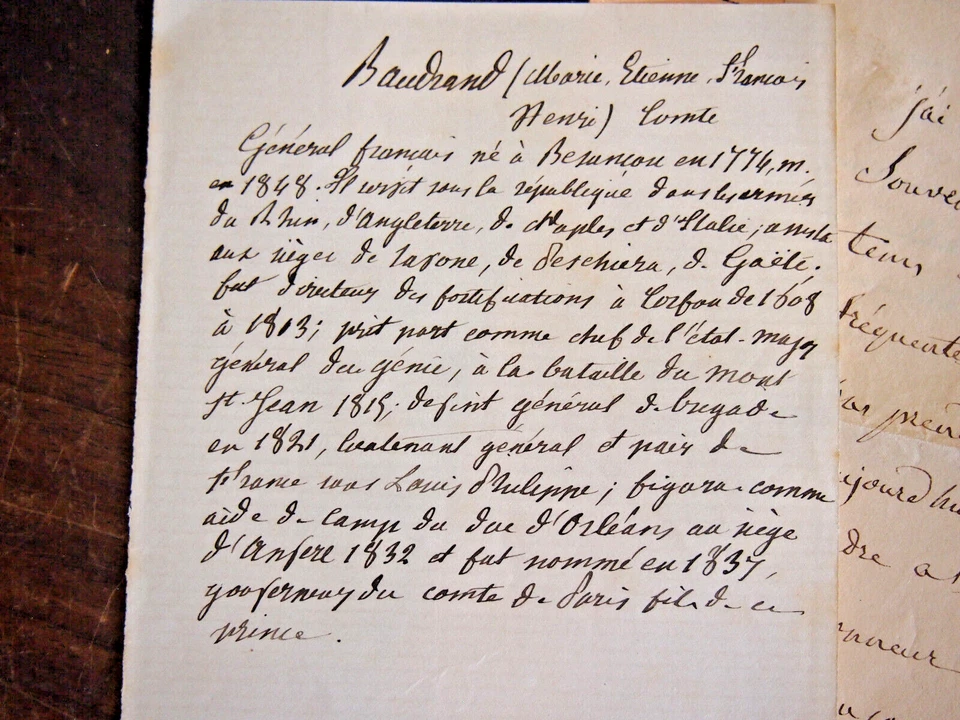 Baudrand (Marie, Etienne, François
Henri) Comte
Général français né à Besançon en 1774, m.
en 1848. Il servit sous la république dans les armées
du Rhin, d'Angleterre, de Naples et d'Italie; assista
aux sièges de Savone, de Peschiera, de Gaëte.
fut directeur des fortifications à Corfou de 1808
à 1813; prit part comme chef de l'état-major
général du génie, à la bataille du Mont
St Jean 1815; devint général de brigade
en 1821, lieutenant général et pair de
France sous Louis Philippe; figura comme
aide de camp du duc d'Orléans au siège
d'Anvers 1832 et fut nommé en 1837,
gouverneur du comte de Paris fils de ce
prince.
j'ai
Souve
tems
fréquente
pren
ujourd'hu
dre a
nneur